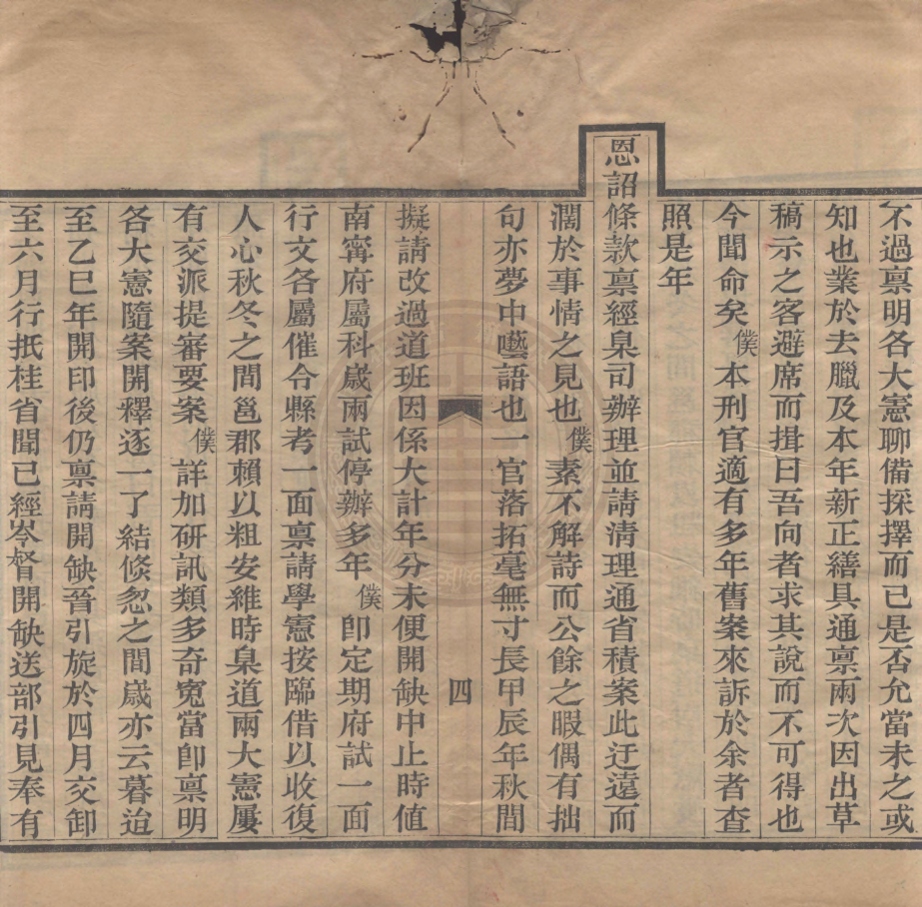 不過禀明各大憲聊備採擇而已是否允當未之或
知也業於去臘及本年新正繕具通禀兩次因出草
稿示之客避席而揖曰吾向者求其說而不可得也
今聞命矣僕本刑官適有多年舊案來訴於余者查
照是年
恩詔條款禀經臬司辦理並請清理通省積案此迂遠而
濶於事情之見也僕素不解詩而公餘之暇偶有拙
句亦夢中囈語也一官落拓毫無寸長甲辰年秋間
四
擬請改過道班因係大計年分未便開缺中止時值
南寗府屬科歲兩試停辦多年僕卽定期府試一面
行文各屬催令縣考一面禀請學憲按臨借以收復
人心秋冬之間邕郡賴以粗安維時臬道兩大憲屢
有交派提審要案僕詳加研訊類多奇寃當卽禀明
各大憲隨案開釋逐一了結倏忽之間歲亦云暮迨
至乙巳年開印後仍禀請開缺晉引旋於四月交卸
至六月行抵桂省聞已經岑督開缺送部引見奉有